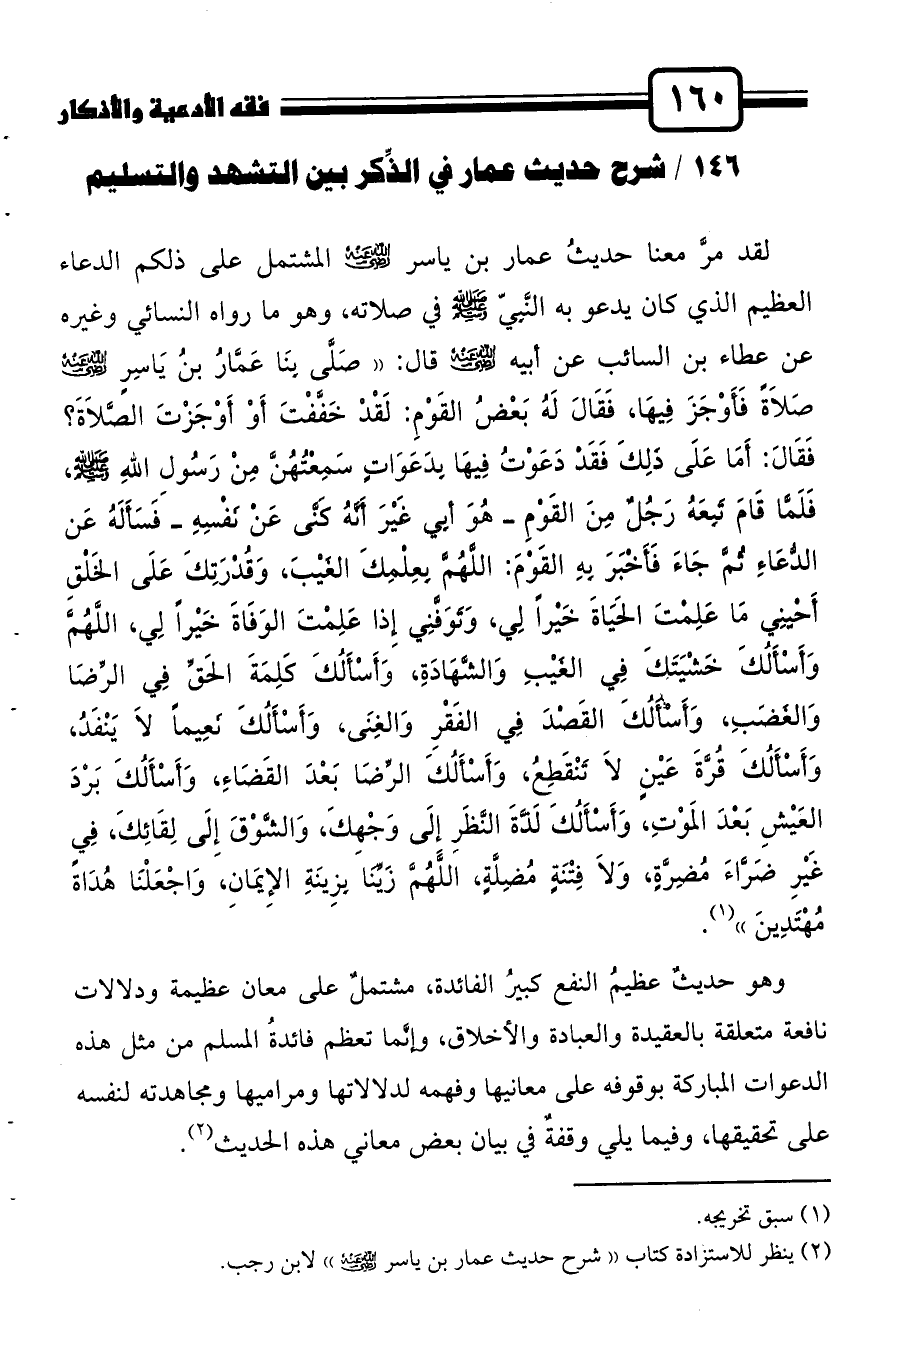 ١٦٠
فقه الأدعية والأذكار
١٤٦ / شرح حديث عمار في الذِّكر بين التشهد والتسليم
لقد مرَّ معنا حديثُ عمار بن ياسر رضي الله عنه المشتمل على ذلكم الدعاء
العظيم الذي كان يدعو به النَّبِيّ ﷺ في صلاته، وهو ما رواه النسائي وغيره
عن عطاء بن السائب عن أبيه رضي الله عنه قال: « صَلَّى بِنَا عَمَّارُ بنُ يَاسِرٍ رضي الله عنه
صَلاَةً فَأَوْجَزَ فِيهَا، فَقَالَ لَهُ بَعْضُ القَوْمِ: لَقَدْ خَفَّفْتَ أَوْ أَوْجَزْتَ الصَّلاَةَ؟
فَقَالَ: أَمَا عَلَى ذَلِكَ فَقَدْ دَعَوْتُ فِيهَا بِدَعَوَاتٍ سَمِعْتُهُنَّ مِنْ رَسُولِ اللهِ ﷺ،
فَلَمَّا قَامَ تَبِعَهُ رَجُلٌ مِنَ القَوْمِ ـ هُوَ أَبِي غَيْرَ أَنَّهُ كَنَّى عَنْ نَفْسِهِ ـ فَسَأَلَهُ عَنِ
الدُّعَاءِ ثُمَّ جَاءَ فَأَخْبَرَ بِهِ القَوْمَ: اللَّهُمَّ بِعِلْمِكَ الغَيْبَ، وَقُدْرَتِكَ عَلَى الخَلْقِ
أَحْيِنِي مَا عَلِمْتَ الحَيَاةَ خَيْراً لِي، وَتَوَفَّنِي إِذا عَلِمْتَ الوَفَاةَ خَيْراً لِي، اللَّهُمَّ
وَأَسْأَلُكَ خَشْيَتَكَ فِي الغَيْبِ وَالشَّهَادَةِ، وَأَسْأَلُكَ كَلِمَةَ الحَقِّ فِي الرِّضَا
وَالغَضَبِ، وَأَسْأَلُكَ القَصْدَ فِي الفَقْرِ وَالغِنَى، وَأَسْأَلُكَ نَعِيماً لاَ يَنْفَدُ،
وَأَسْأَلُكَ قُرَّةَ عَيْنٍ لاَ تَنْقَطِعُ، وَأَسْأَلُكَ الرِّضَا بَعْدَ القَضَاءِ، وَأَسْأَلُكَ بَرْدَ
العَيْشِ بَعْدَ المَوْتِ، وَأَسْأَلُكَ لَذَّةَ النَّظَرِ إِلَى وَجْهِكَ، وَالشَّوْقَ إِلَى لِقَائِكَ، فِي
غَيْرِ ضَرَّاءَ مُضِرَّةٍ، وَلاَ فِتْنَةٍ مُضِلَّةٍ، اللَّهُمَّ زَيِّنَّا بِزِينَةِ الإِيمَانِ، وَاجْعَلْنَا هُدَاةً
مُهْتَدِينَ »(١).
وهو حديثٌ عظيمُ النفع كبيرُ الفائدة، مشتملٌ على معان عظيمة ودلالات
نافعة متعلقة بالعقيدة والعبادة والأخلاق، وإنَّما تعظم فائدةُ المسلم من مثل هذه
الدعوات المباركة بوقوفه على معانيها وفهمه لدلالاتها ومراميها ومجاهدته لنفسه
على تحقيقها، وفيما يلي وقفةٌ في بيان بعض معاني هذه الحديث(٢).
(١) سبق تخريجه.
(٢) ينظر للاستزادة كتاب « شرح حديث عمار بن ياسر رضي الله عنه » لابن رجب.